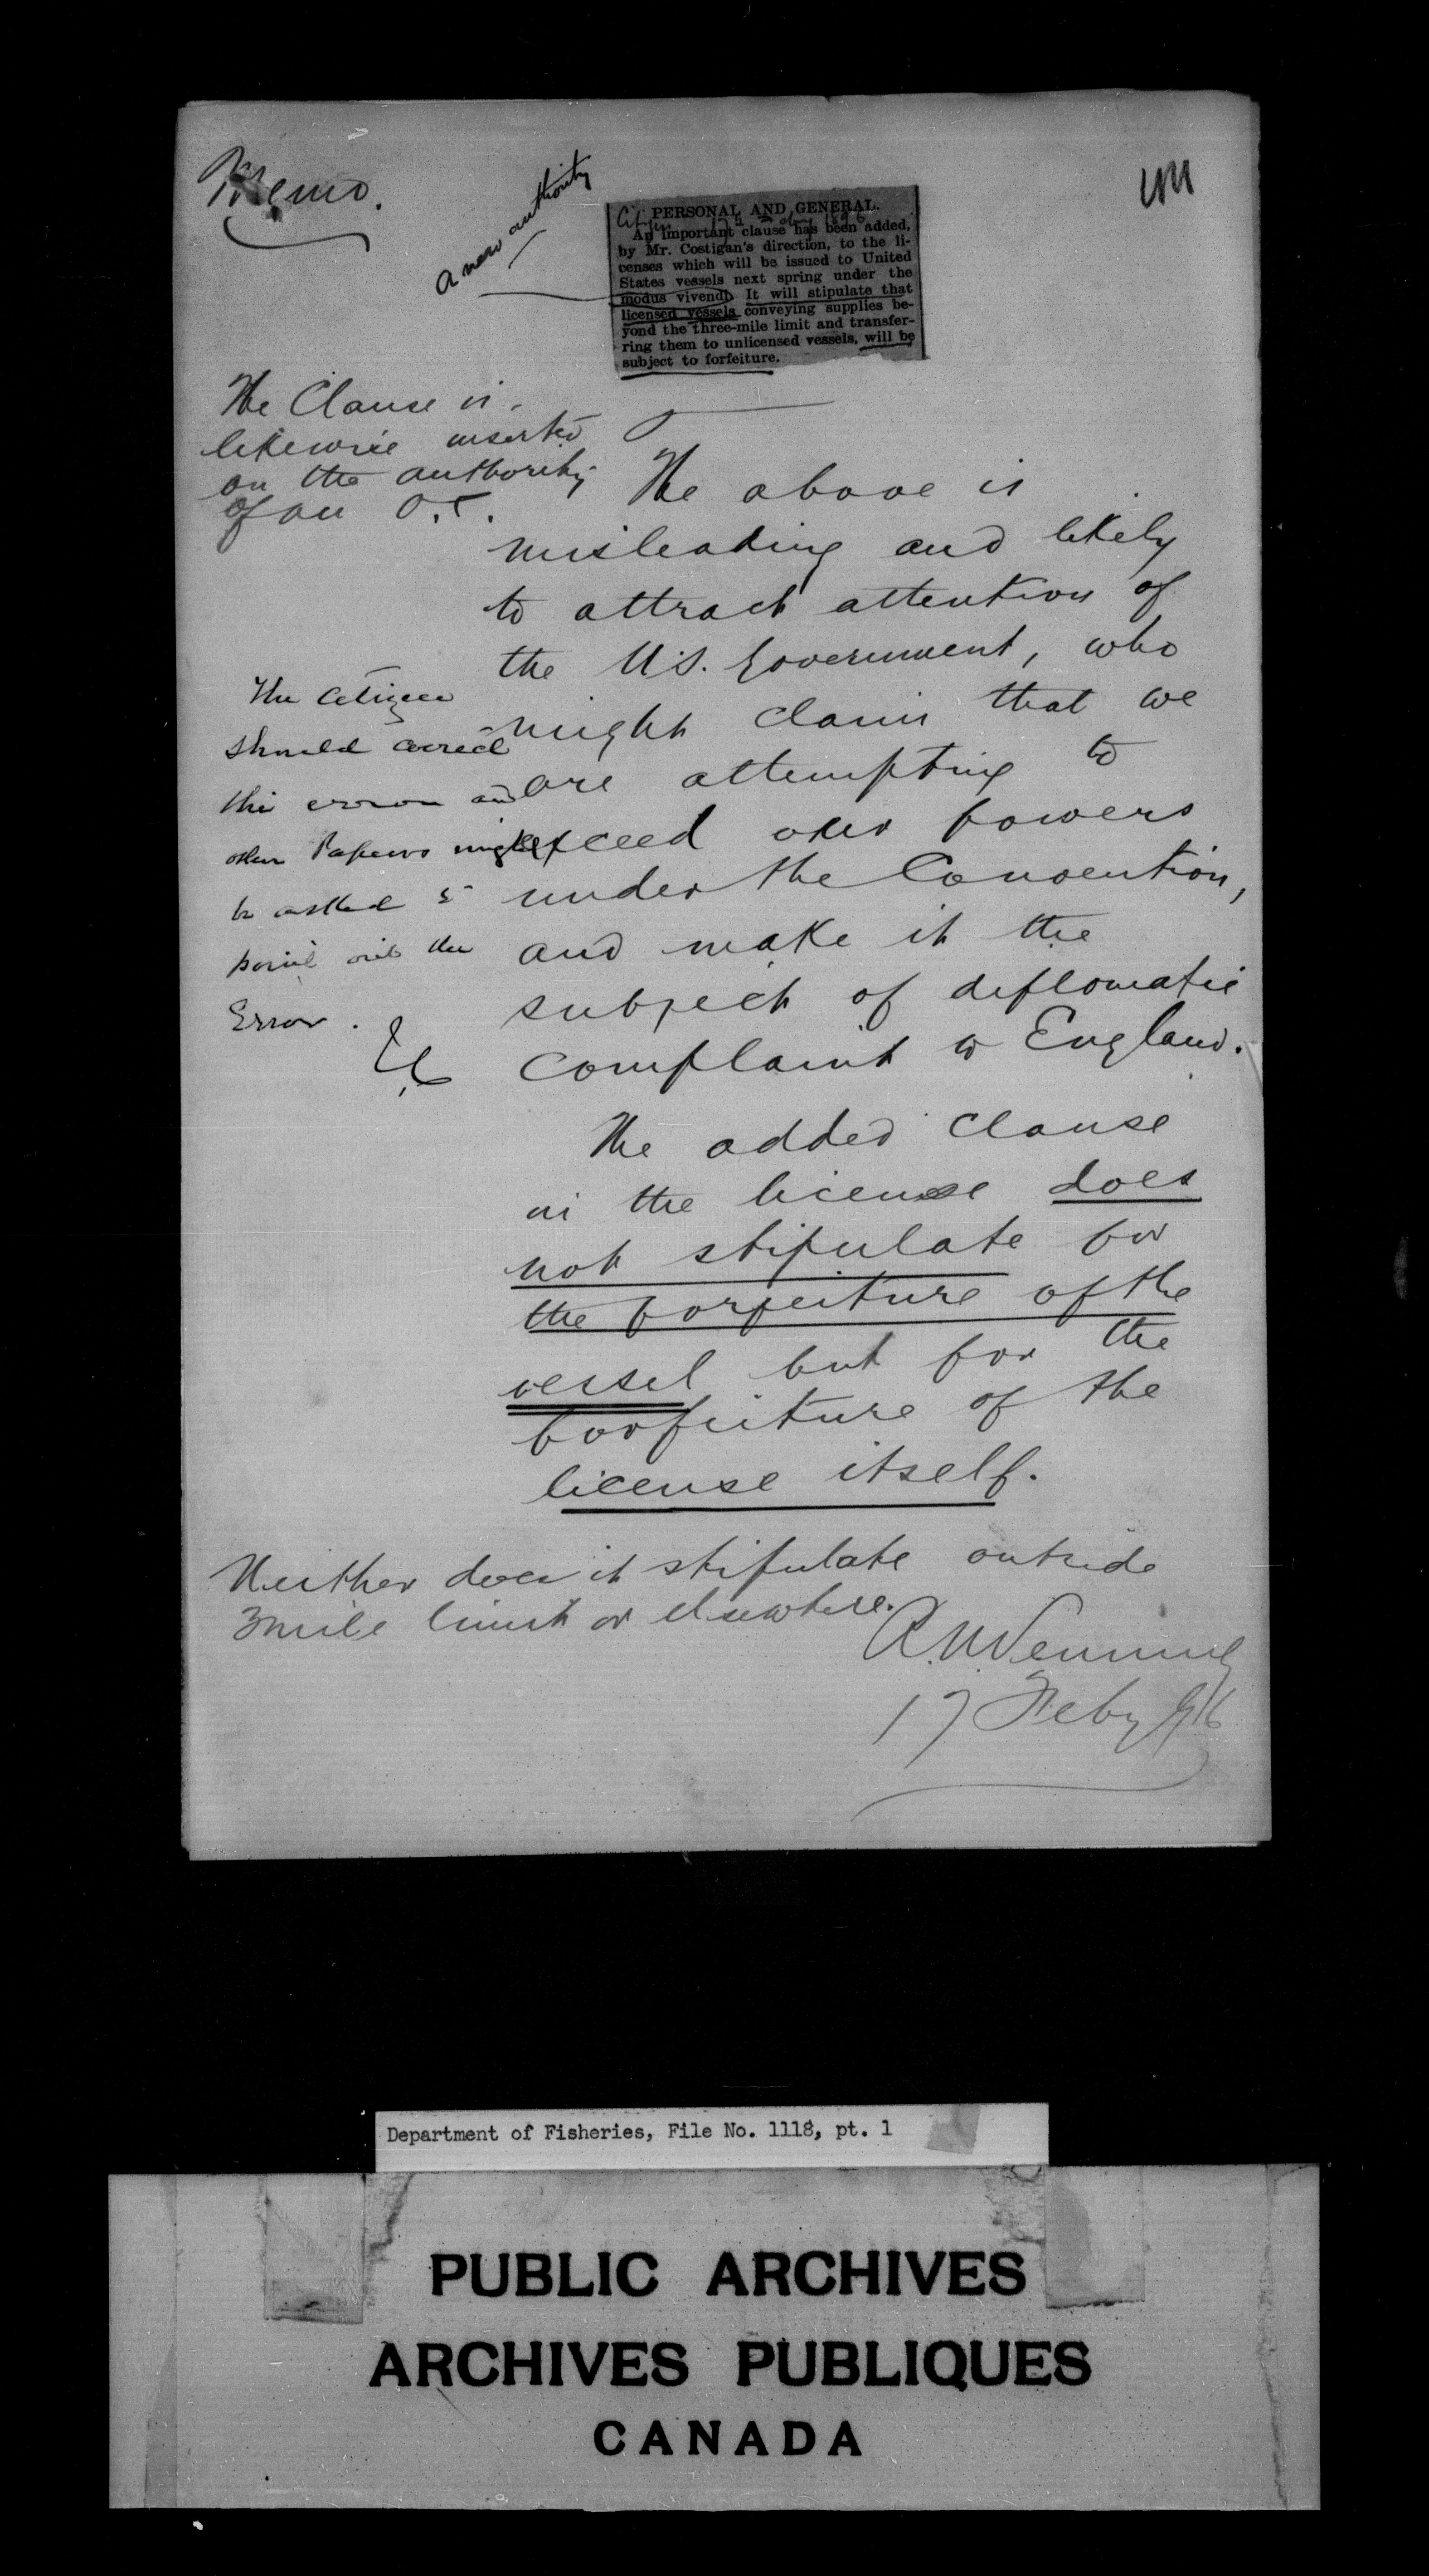 Memo.
A new authority
PERSONAL AND GENERAL.
Citizen 17th Feby 1896
An important clause has been added,
by Mr. Costigan's direction, to the li-
censes which will be issued to United
States vessels next spring under the
modus vivendi. It will stipulate that
licensed vessels conveying supplies be-
yond the three-mile limit and transfer-
ring them to unlicensed vessels, will be
subject to forfeiture.
The Clause is
likewise inserted
on the authority
of an O.C.
The above is
misleading and likely
to attract attention of
the U.S. Government, who
might claim that we
are attempting to
exceed our powers
under the Convention,
and make it the
subject of diplomatic
complaint to England.
The Citizen
should correct
this error and
other Papers might
be asked to
point out the
Error.
The added clause
in the license does
not stipulate for
the forfeiture of the
vessel but for the
forfeiture of the
license itself.
Neither does it stipulate outside
3 mile limit or elsewhere.
R.N. Venning
17 Feby 96
Department of Fisheries, File No. 1118, pt. 1
PUBLIC ARCHIVES
ARCHIVES PUBLIQUES
CANADA